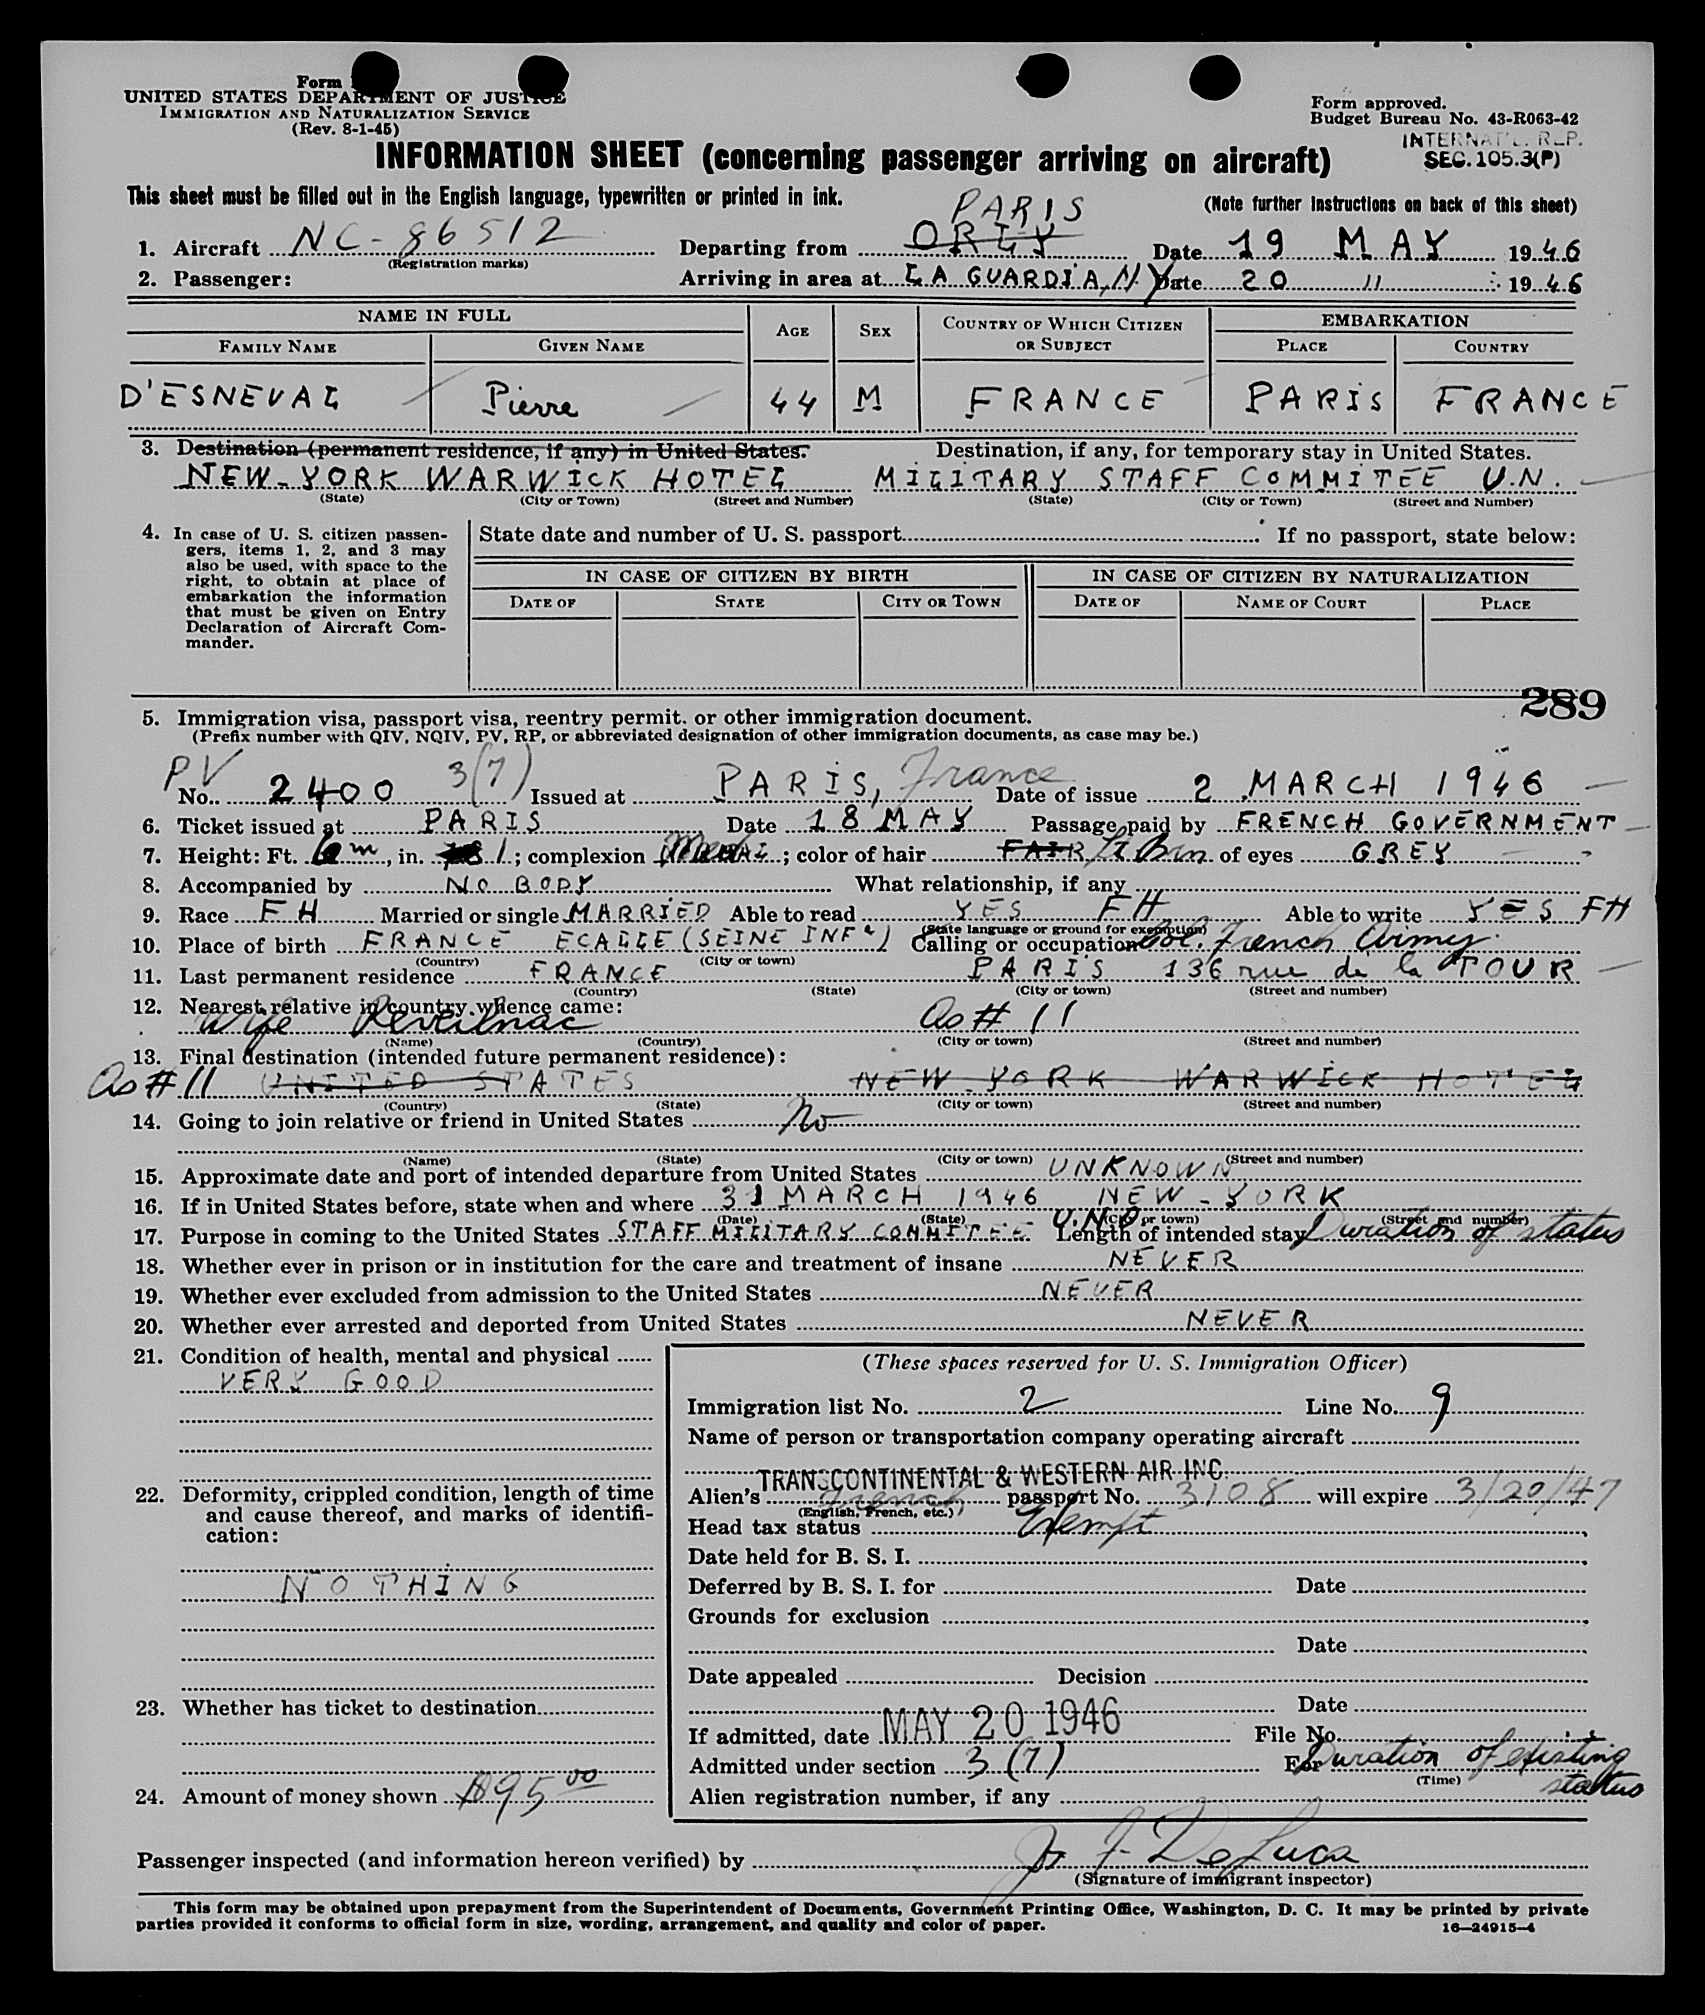 Form
UNITED STATES DEPARTMENT OF JUSTICE
IMMIGRATION AND NATURALIZATION SERVICE
(Rev. 8-1-45)
Form approved.
Budget Bureau No. 43-R063-42
SEC. 105.3(P)
INFORMATION SHEET (concerning passenger arriving on aircraft)
This sheet must be filled out in the English language, typewritten or printed in ink.
(Note further instructions on back of this sheet)
PARIS
1. Aircraft NC-86512 Departing from ORLY Date 19 MAY 1946
(Registration marks)
2. Passenger: Arriving in area at LA GUARDIA, N.Y. Date 20 " 1946
NAME IN FULL AGE SEX COUNTRY OF WHICH CITIZEN OR SUBJECT EMBARKATION
FAMILY NAME GIVEN NAME PLACE COUNTRY
D'ESNEVAL Pierre 44 M FRANCE PARIS FRANCE
3. Destination (permanent residence, if any) in United States. Destination, if any, for temporary stay in United States.
NEW-YORK WARWICK HOTEL MILITARY STAFF COMMITEE U.N.
(State) (City or Town) (Street and Number) (State) (City or Town) (Street and Number)
4. In case of U. S. citizen passengers, items 1, 2, and 3 may also be used, with space to the right, to obtain at place of embarkation the information that must be given on Entry Declaration of Aircraft Commander.
State date and number of U. S. passport If no passport, state below:
IN CASE OF CITIZEN BY BIRTH IN CASE OF CITIZEN BY NATURALIZATION
DATE OF STATE CITY OR TOWN DATE OF NAME OF COURT PLACE
289
5. Immigration visa, passport visa, reentry permit. or other immigration document.
(Prefix number with QIV, NQIV, PV, RP, or abbreviated designation of other immigration documents, as case may be.)
PV No. 2400 3(7) Issued at PARIS, France Date of issue 2 MARCH 1946
6. Ticket issued at PARIS Date 18 MAY Passage paid by FRENCH GOVERNMENT
7. Height: Ft. in. ; complexion ; color of hair FAIR Lt Brn of eyes GREY
8. Accompanied by NO BODY What relationship, if any
9. Race FH Married or single MARRIED Able to read YES FH Able to write YES FH
(State language or ground for exemption)
10. Place of birth FRANCE ECALLE (SEINE INFe) Calling or occupation Col. French Army
(Country) (City or town)
11. Last permanent residence FRANCE PARIS 136 rue de la TOUR
(Country) (State) (City or town) (Street and number)
12. Nearest relative in country whence came:
Wife As # 11
(Name) (Country) (City or town) (Street and number)
13. Final destination (intended future permanent residence):
As # 11 UNITED STATES NEW YORK WARWICK HOTEL
(Country) (State) (City or town) (Street and number)
14. Going to join relative or friend in United States No
(Name) (State) (City or town) (Street and number)
15. Approximate date and port of intended departure from United States UNKNOWN
16. If in United States before, state when and where 31 MARCH 1946 NEW-YORK
(Date) (State) (City or town) (Street and number)
17. Purpose in coming to the United States STAFF MILITARY COMMITEE U.N.O Length of intended stay Duration of status
18. Whether ever in prison or in institution for the care and treatment of insane NEVER
19. Whether ever excluded from admission to the United States NEVER
20. Whether ever arrested and deported from United States NEVER
21. Condition of health, mental and physical
VERY GOOD
22. Deformity, crippled condition, length of time and cause thereof, and marks of identification:
NOTHING
23. Whether has ticket to destination
24. Amount of money shown $95.00
(These spaces reserved for U. S. Immigration Officer)
Immigration list No. 2 Line No. 9
Name of person or transportation company operating aircraft
TRANSCONTINENTAL & WESTERN AIR INC.
Alien's French passport No. 3108 will expire 3/20/47
(English, French, etc.)
Head tax status Exempt
Date held for B. S. I.
Deferred by B. S. I. for Date
Grounds for exclusion
Date
Date appealed Decision
Date
If admitted, date MAY 20 1946 File No.
Admitted under section 3 (7) For Duration of existing status
(Time)
Alien registration number, if any
Passenger inspected (and information hereon verified) by J. F. DeLuca
(Signature of immigrant inspector)
This form may be obtained upon prepayment from the Superintendent of Documents, Government Printing Office, Washington, D. C. It may be printed by private
parties provided it conforms to official form in size, wording, arrangement, and quality and color of paper.
16—24915-4